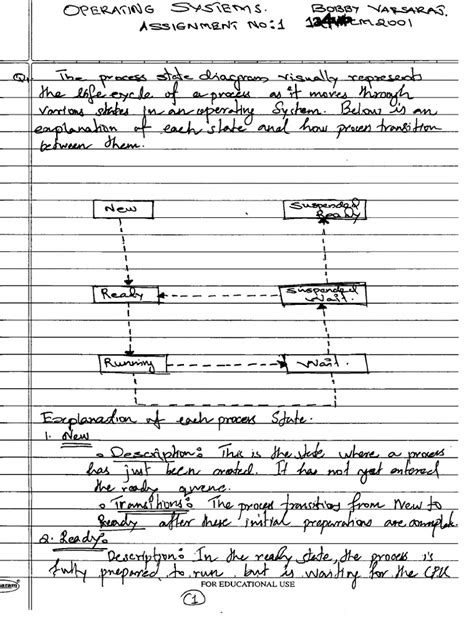 OPERATING SYSTEMS.
BOBBY VARSARAJ.
ASSIGNMENT NO:1
Q.
The process state diagram visually represents
the life cycle of a process as it moves through
various states in an operating System. Below is an
explanation of each state and how process transition
between them.
New
Suspended
Ready
Ready
Suspended
Wait.
Running
Wait.
Explanation of each process State.
1. New
Description: This is the state where a process
has just been created. It has not yet entered
the ready queue.
Transitions: The process transitions from New to
Ready after these initial preparations are complete.
2. Ready:
Description: In the ready state, the process is
fully prepared to run but is waiting for the CPU
FOR EDUCATIONAL USE
1